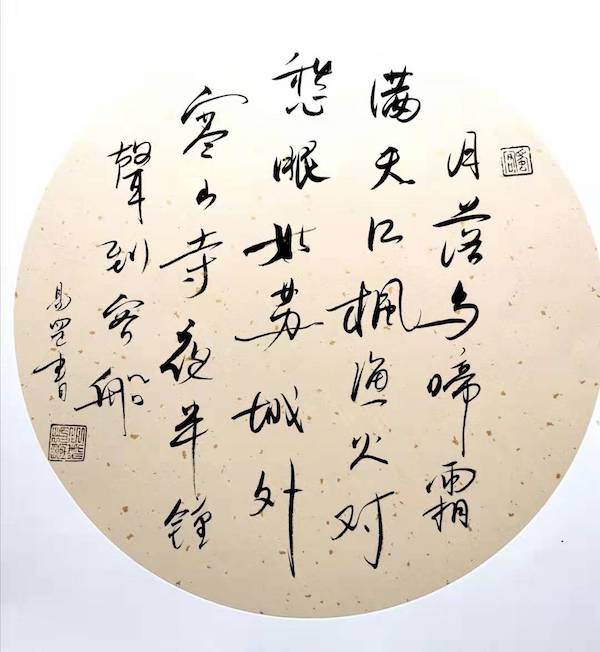 月落乌啼霜
满天江枫渔火对
愁眠姑苏城外
寒山寺夜半鐘
聲到客船
易罡書